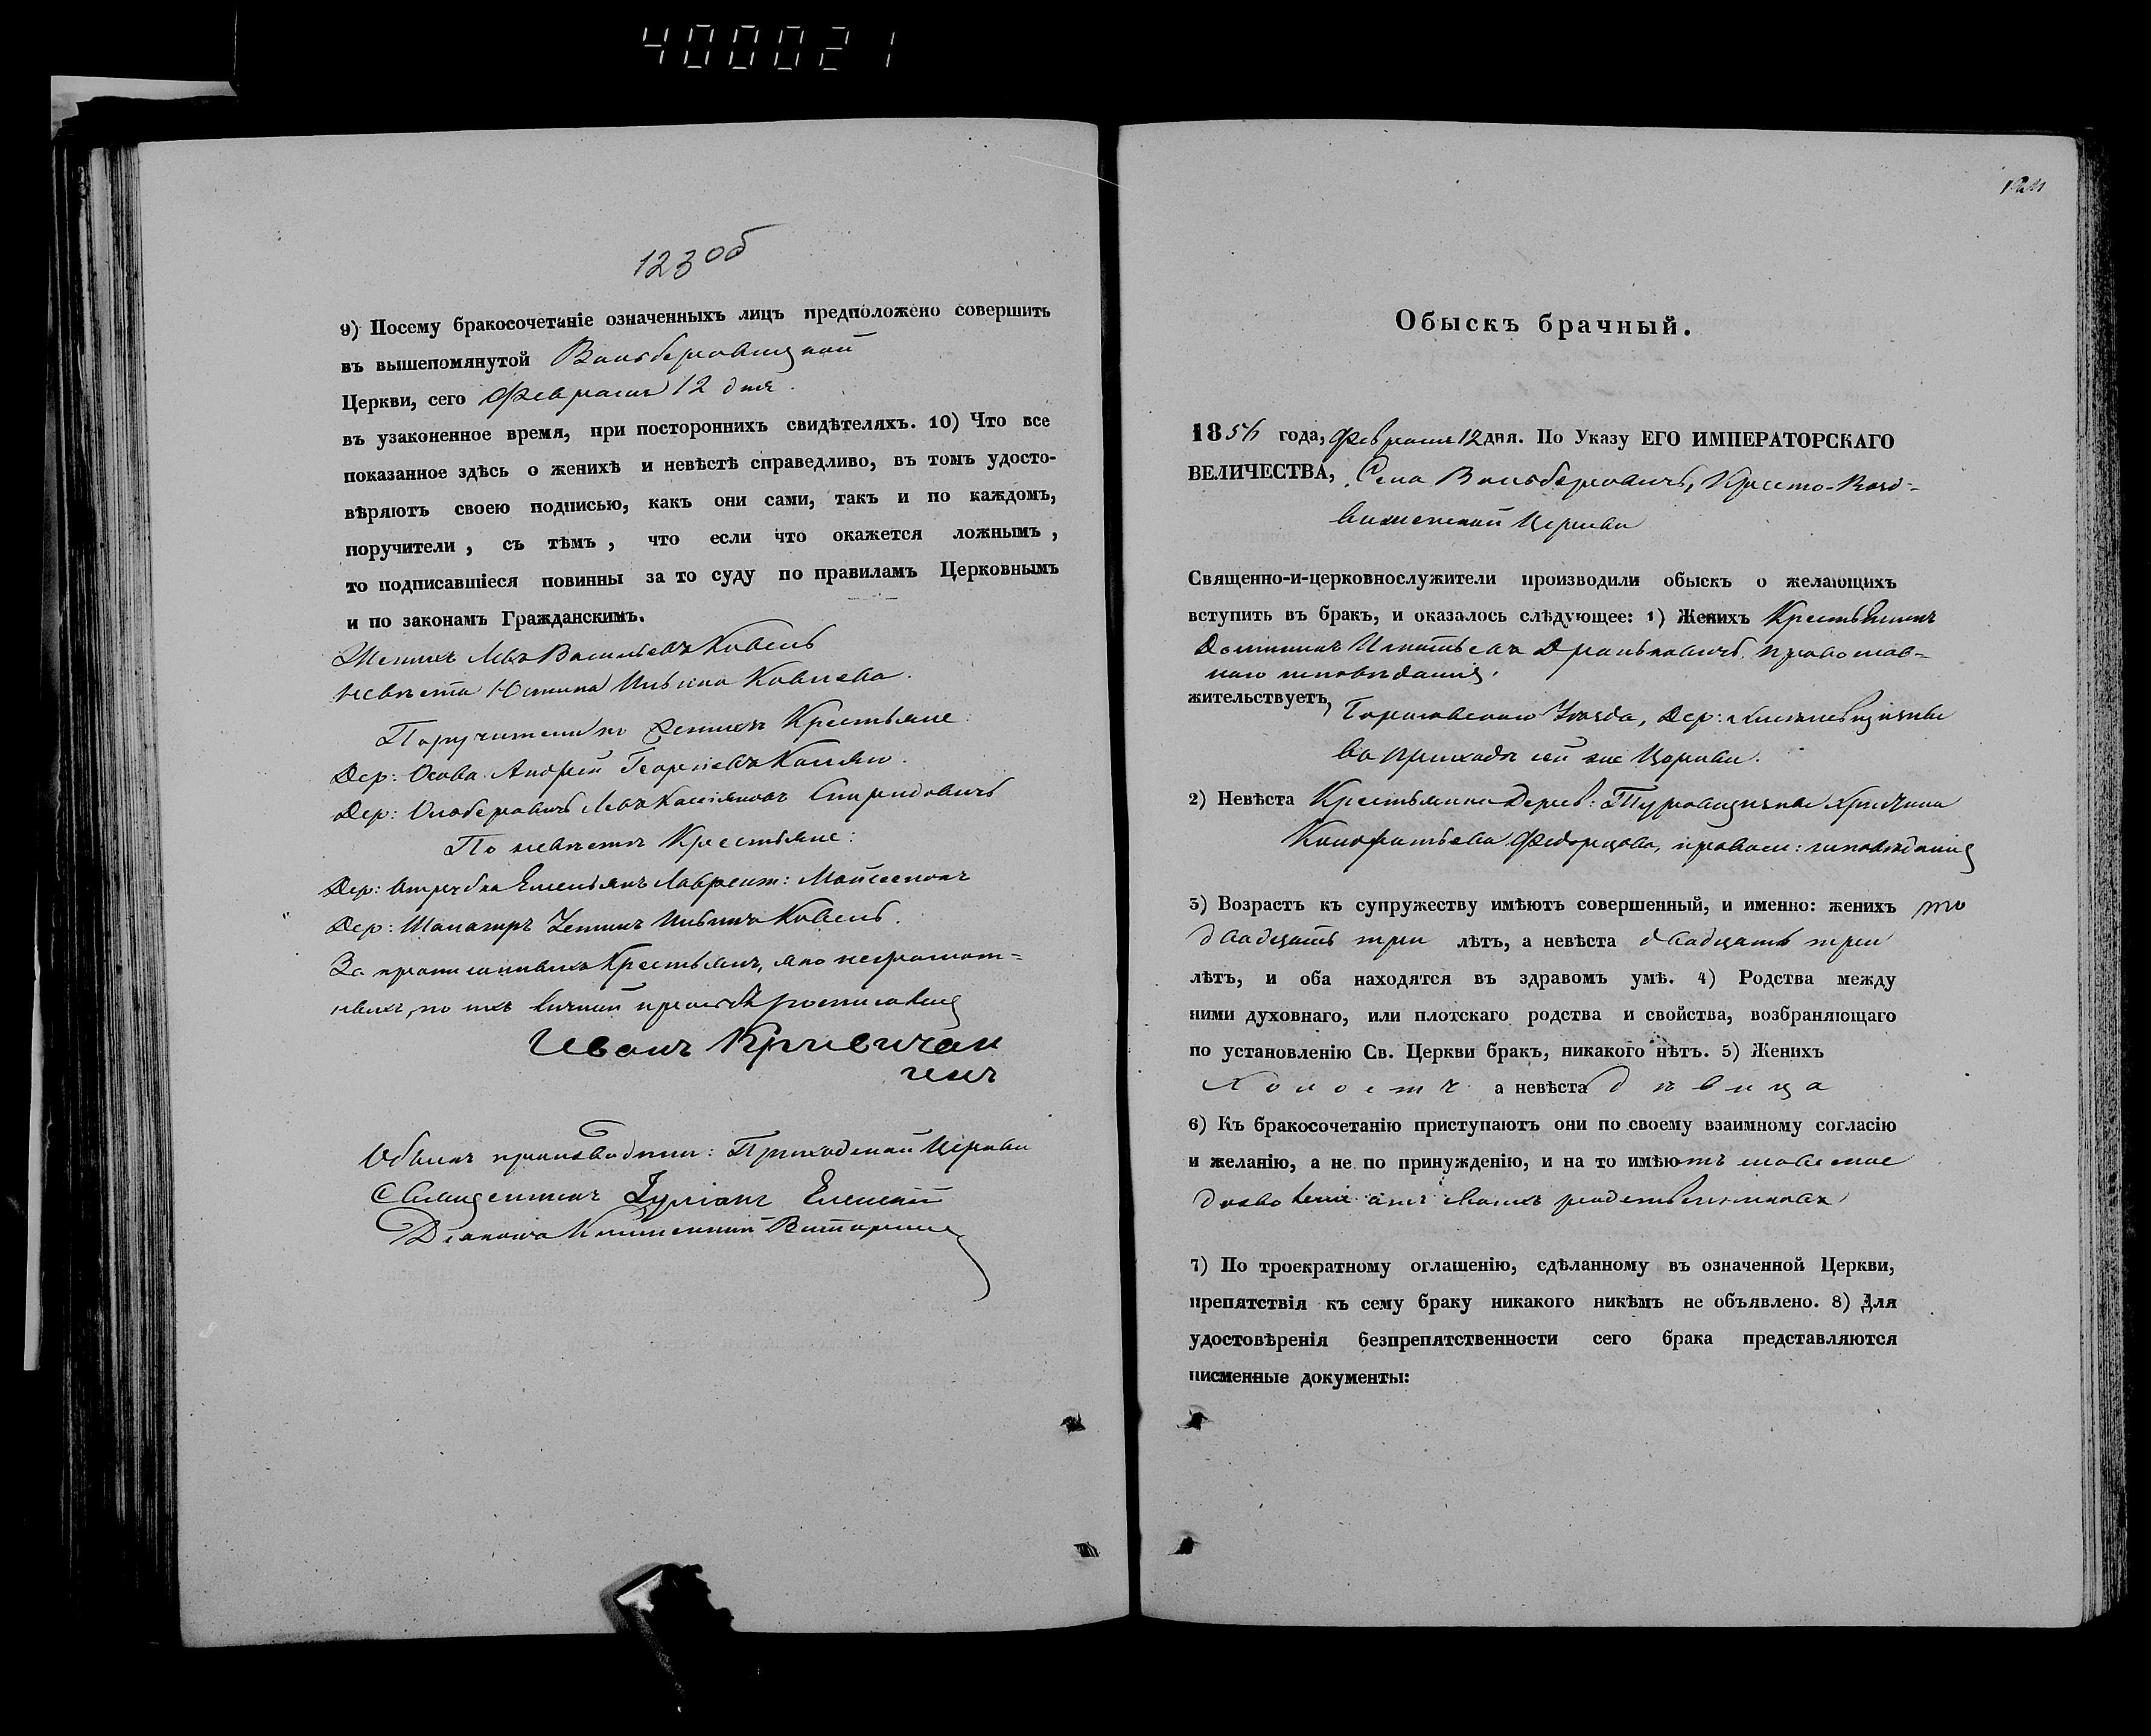 400021
123 об
9) Посему бракосочетаніе означенныхъ лицъ предположено совершить
въ вышепомянутой Вольберовицкой
Церкви, сего Февраля 12 дня.
въ узаконенное время, при постороннихъ свидѣтеляхъ. 10) Что все
показанное здѣсь о женихѣ и невѣстѣ справедливо, въ томъ удосто-
вѣряютъ своею подписью, какъ они сами, такъ и по каждомъ,
поручители, съ тѣмъ, что если что окажется ложнымъ,
то подписавшіеся повинны за то суду по правиламъ Церковнымъ
и по законамъ Гражданскимъ.
Женихъ Левъ Васильевъ Ковель
невѣста Юстина Ильина Ковлева.
Поручители по Женихѣ Крестьяне:
Дер: Осова Андрей Георгіевъ
Дер: Левъ Касіяновъ Спиридовичъ
По невѣстѣ Крестьяне:
Дер: Емельянъ Лаврент: Моисеенокъ
Дер: Устинъ Ильинъ Ковель.
За прописанныхъ Крестьянъ, яко неграмот-
ныхъ, по ихъ личной прозьбѣ росписавша
Иванъ
Обыскъ производили: Приходской Церкви
Священникъ Іуліанъ
Діаконъ
Обыскъ брачный.
1856 года, Февраля 12 дня. По Указу ЕГО ИМПЕРАТОРСКАГО
ВЕЛИЧЕСТВА, Села Вольберовичъ, Кресто-Возд-
виженской Церкви
Священно-и-церковнослужители производили обыскъ о желающихъ
вступить въ бракъ, и оказалось слѣдующее: 1) Женихъ Крестьянинъ
Доминикъ Игнатьевъ православ-
наго исповѣданія,
жительствуетъ, Уѣзда, Дер:
въ приходѣ сей же Церкви.
2) Невѣста Крестьянка Дерев: Христина
Федорцова, правосл: исповѣданія
3) Возрастъ къ супружеству имѣютъ совершенный, и именно: женихъ
двадцать три лѣтъ, а невѣста двадцать три
лѣтъ, и оба находятся въ здравомъ умѣ. 4) Родства между
ними духовнаго, или плотскаго родства и свойства, возбраняющаго
по установленію Св. Церкви бракъ, никакого нѣтъ. 5) Женихъ
Холостъ а невѣста дѣвица
6) Къ бракосочетанію приступаютъ они по своему взаимному согласію
и желанію, а не по принужденію, и на то имѣютъ словесное
дозволеніе отъ своихъ родственниковъ
7) По троекратному оглашенію, сдѣланному въ означенной Церкви,
препятствія къ сему браку никакого никѣмъ не объявлено. 8) Для
удостовѣренія безпрепятственности сего брака представляются
писменные документы: